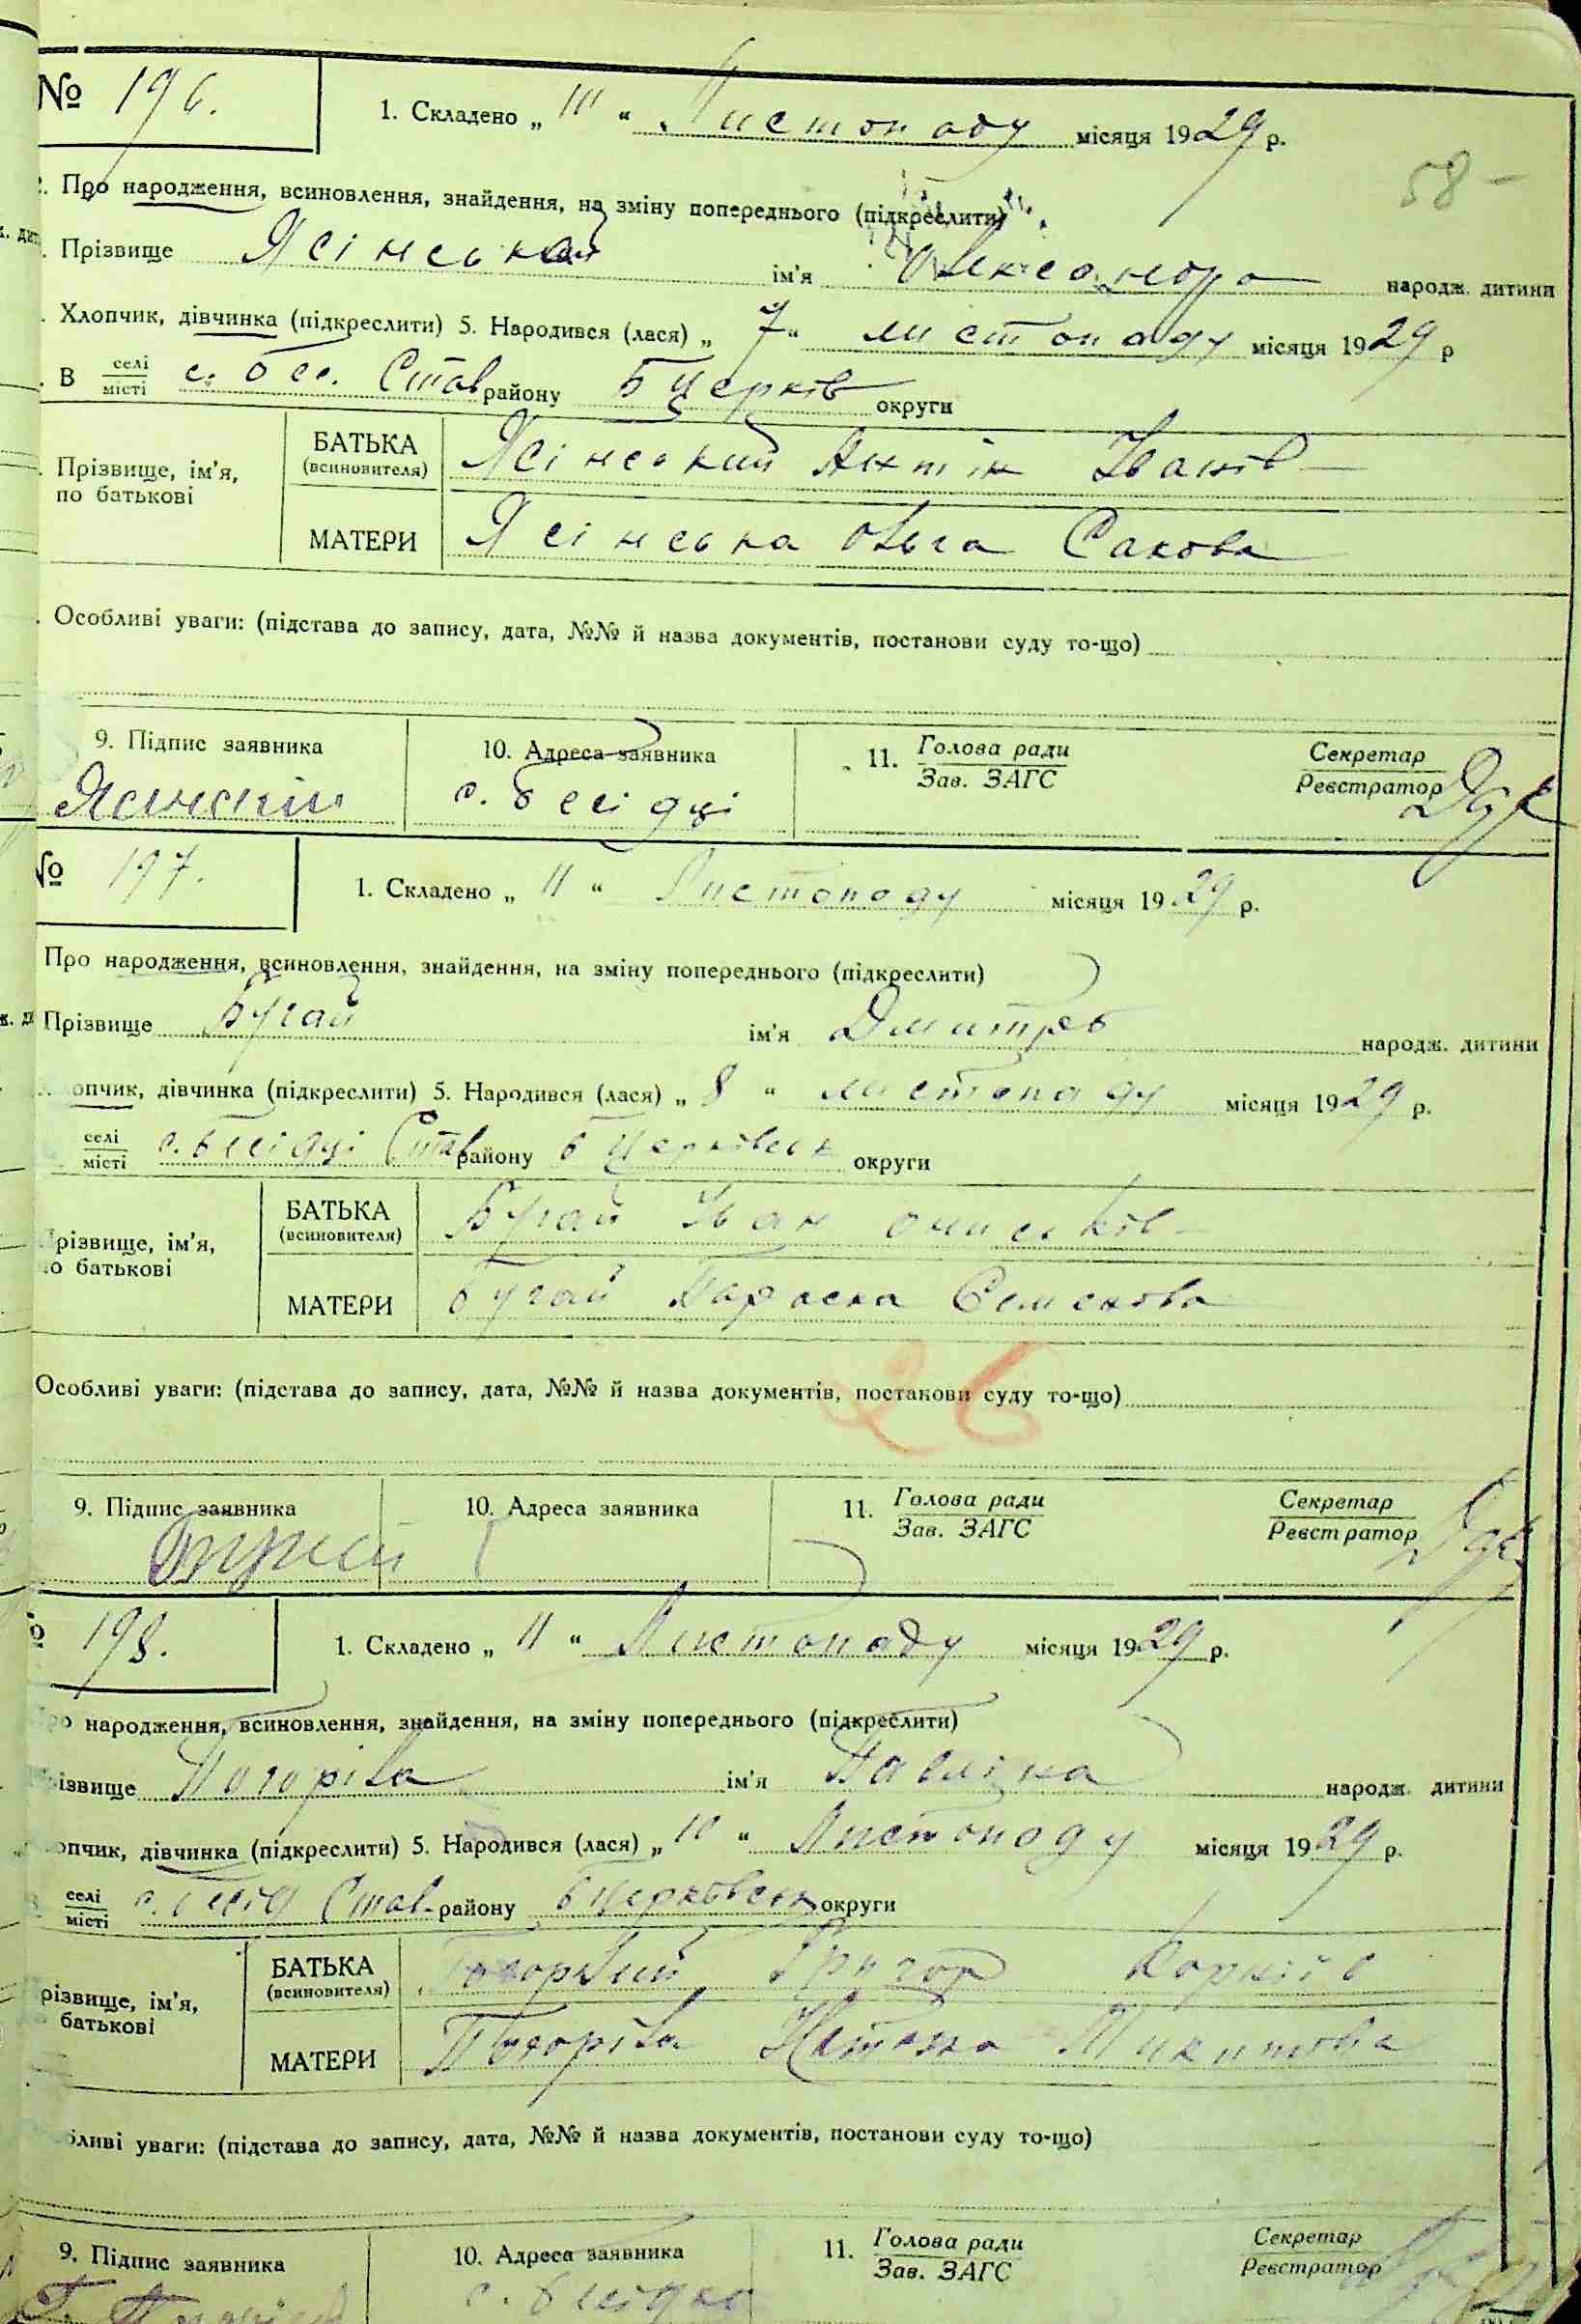 № 196.
1. Складено „ 11 “ Листопаду місяця 1929 р.
58
Про народження, всиновлення, знайдення, на зміну попереднього (підкреслити)
Прізвище Ясінська ім'я Олександра народж. дитини
Хлопчик, дівчинка (підкреслити) 5. Народився (лася) „ 7 “ листопаду місяця 1929 р
В селі місті с. Бес. Став району Б Церків округи
Прізвище, ім'я, по батькові
БАТЬКА (всиновителя) Ясінський Антін Іванів
МАТЕРИ Ясінська Ольга Сакова
Особливі уваги: (підстава до запису, дата, №№ й назва документів, постанови суду то-що)
9. Підпис заявника 10. Адреса заявника 11. Голова ради Зав. ЗАГС Секретар Реєстратор
Ясинский с. Бесідці
№ 197.
1. Складено „ 11 “ Листопаду місяця 1929 р.
Про народження, всиновлення, знайдення, на зміну попереднього (підкреслити)
Прізвище Бугай ім'я Дмитро народж. дитини
опчик, дівчинка (підкреслити) 5. Народився (лася) „ 8 “ листопаду місяця 1929 р.
селі місті с. Бесідці Став району Б Церківськ округи
різвище, ім'я, о батькові
БАТЬКА (всиновителя) Бугай Іван Ониськів
МАТЕРИ Бугай Параска Семенова
26
Особливі уваги: (підстава до запису, дата, №№ й назва документів, постанови суду то-що)
9. Підпис заявника 10. Адреса заявника 11. Голова ради Зав. ЗАГС Секретар Реєстратор
198.
1. Складено „ 11 “ Листопаду місяця 1929 р.
народження, всиновлення, знайдення, на зміну попереднього (підкреслити)
ізвище Погоріла ім'я Павліна народж. дитини
опчик, дівчинка (підкреслити) 5. Народився (лася) „ 10 “ Листопаду місяця 1929 р.
селі місті с. Бесід Став. району Б Церківськ округи
різвище, ім'я, батькові
БАТЬКА (всиновителя) Погорілий Григор Корнів
МАТЕРИ Погоріла Микитова
бливі уваги: (підстава до запису, дата, №№ й назва документів, постанови суду то-що)
9. Підпис заявника 10. Адреса заявника 11. Голова ради Зав. ЗАГС Секретар Реєстратор